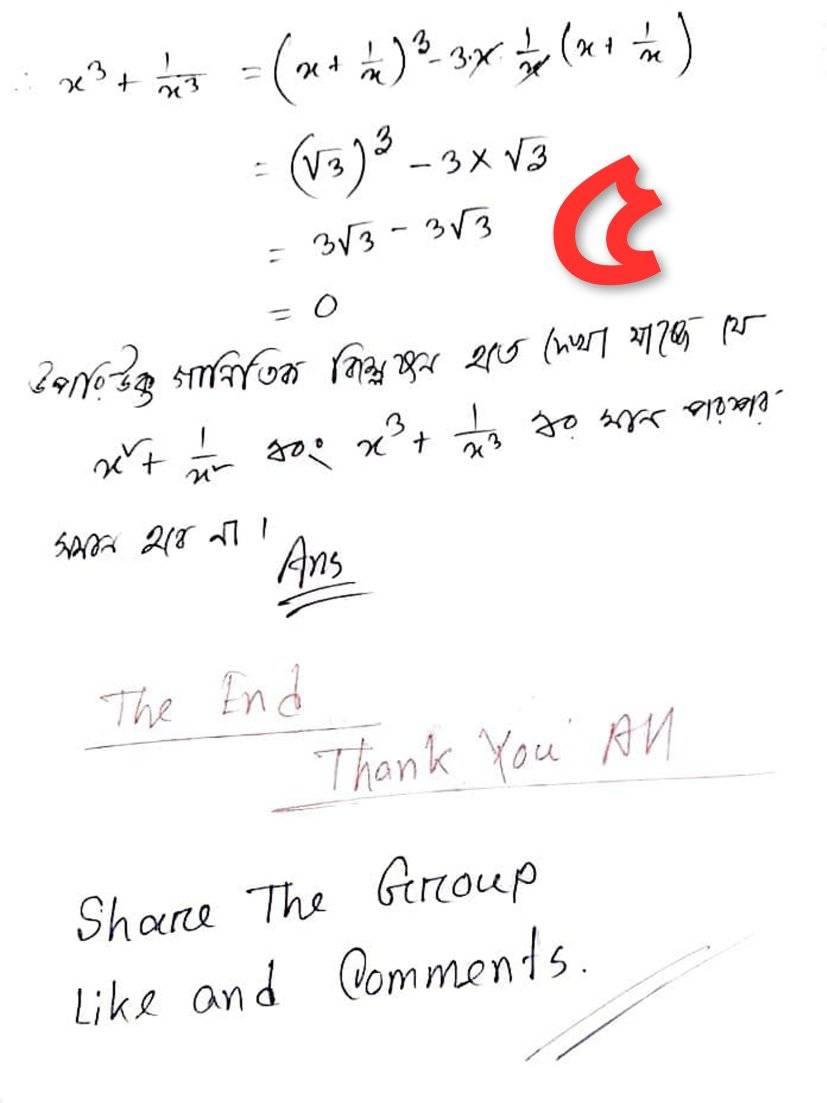 ∴ x³ + 1/x³ = (x + 1/x)³ - 3·x·1/x (x + 1/x)
= (√3)³ - 3 × √3
= 3√3 - 3√3
৫
= 0
উপরিউক্ত গানিতিক বিশ্লেষন হতে দেখা যাচ্ছে যে
x² + 1/x² এবং x³ + 1/x³ এর মান পরস্পর
সমান হবে না।
Ans
The End
Thank You All
Share The Group
Like and Comments.